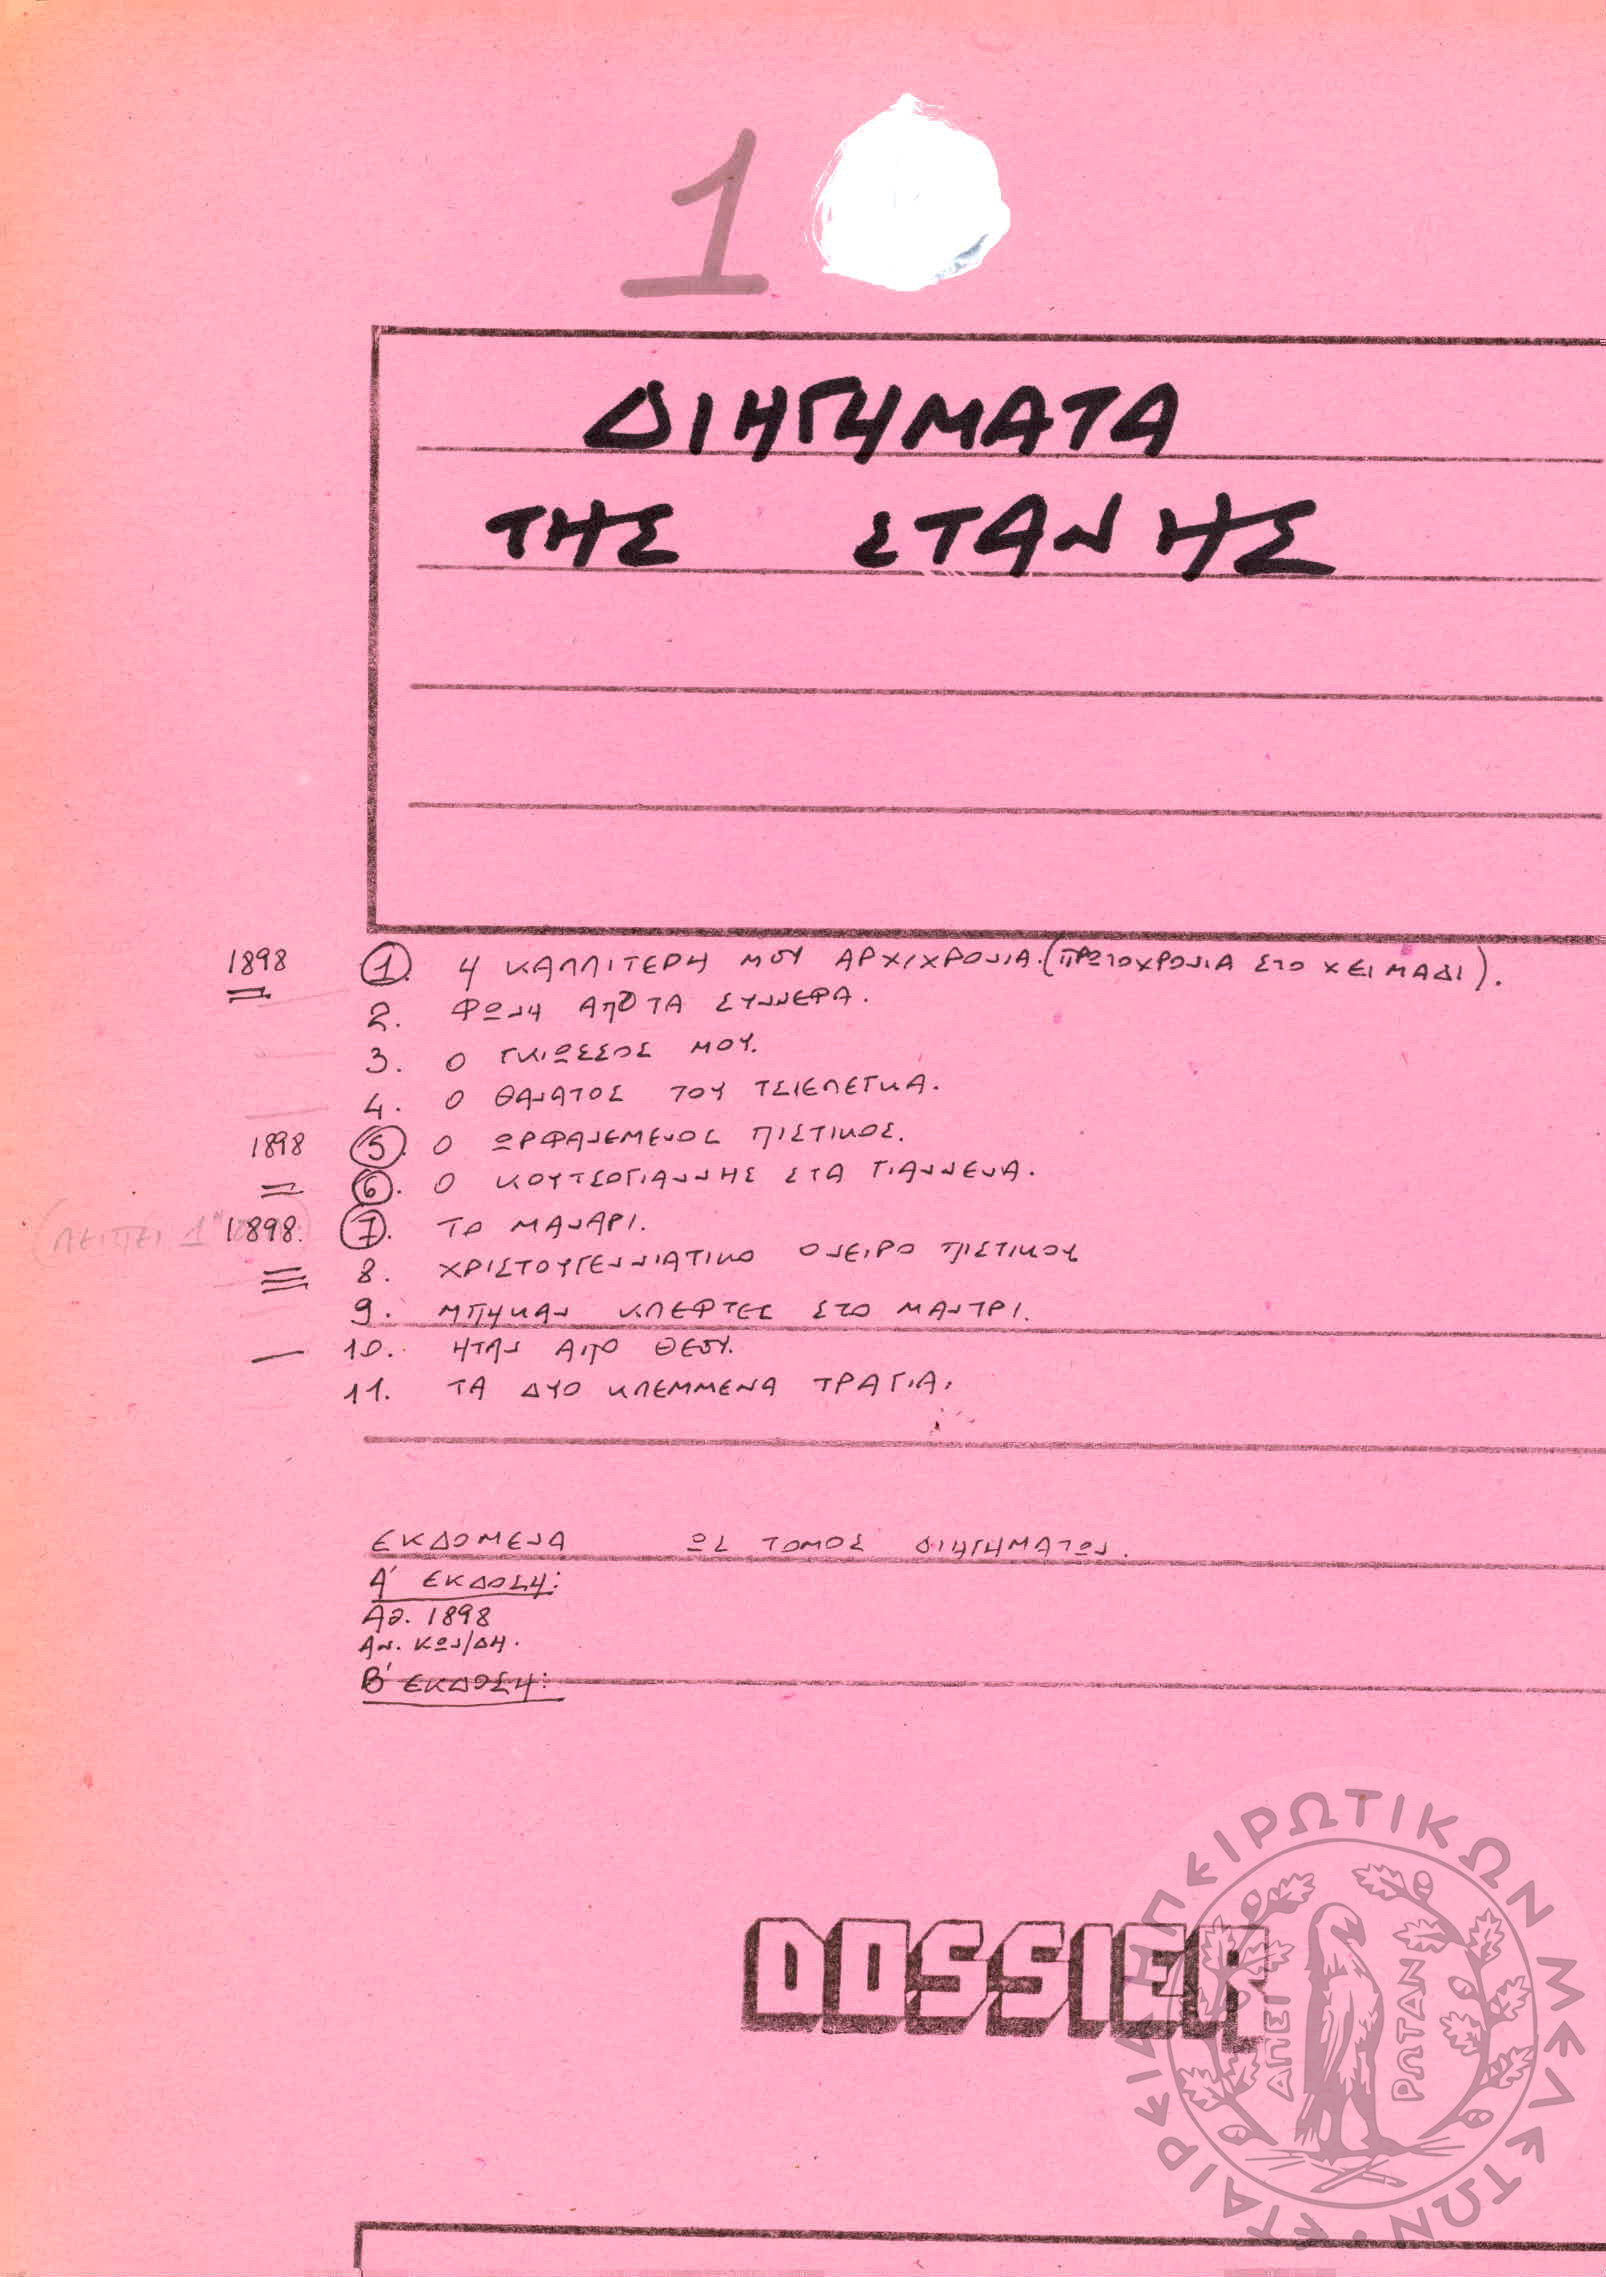 1
ΔΙΗΓΗΜΑΤΑ
ΤΗΣ ΣΤΑΝΗΣ
1898 1. Η ΚΑΛΛΙΤΕΡΗ ΜΟΥ ΑΡΧΙΧΡΟΝΙΑ. (ΠΡΩΤΟΧΡΟΝΙΑ ΣΤΟ ΧΕΙΜΑΔΙ).
2. ΦΩΝΗ ΑΠΟ ΤΑ ΣΥΝΝΕΦΑ.
3. Ο ΓΚΙΩΣΣΟΣ ΜΟΥ.
4. Ο ΘΑΝΑΤΟΣ ΤΟΥ ΤΣΙΕΛΕΓΚΑ.
1898 5. Ο ΩΡΦΑΝΕΜΕΝΟΣ ΠΙΣΤΙΚΟΣ.
6. Ο ΚΟΥΤΣΟΓΙΑΝΝΗΣ ΣΤΑ ΓΙΑΝΝΕΝΑ.
(ΛΕΙΠΕΙ 1η 1898. 7. ΤΟ ΜΑΝΑΡΙ.
8. ΧΡΙΣΤΟΥΓΕΝΝΙΑΤΙΚΟ ΟΝΕΙΡΟ ΠΙΣΤΙΚΟΥ
9. ΜΠΗΚΑΝ ΚΛΕΦΤΕΣ ΣΤΟ ΜΑΝΤΡΙ.
10. ΗΤΑΝ ΑΠΟ ΘΕΟΥ.
11. ΤΑ ΔΥΟ ΚΛΕΜΜΕΝΑ ΤΡΑΓΙΑ.
ΕΚΔΟΜΕΝΑ ΩΣ ΤΟΜΟΣ ΔΙΗΓΗΜΑΤΩΝ.
Α΄ ΕΚΔΟΣΗ:
Αθ. 1898
Αν. ΚΩΝ/ΔΗ.
Β΄ ΕΚΔΟΣΗ:
DOSSIER
ΕΤΑΙΡΕΙΑ ΗΠΕΙΡΩΤΙΚΩΝ ΜΕΛΕΤΩΝ
ΑΠΕΙ
ΡΩΤΑΝ